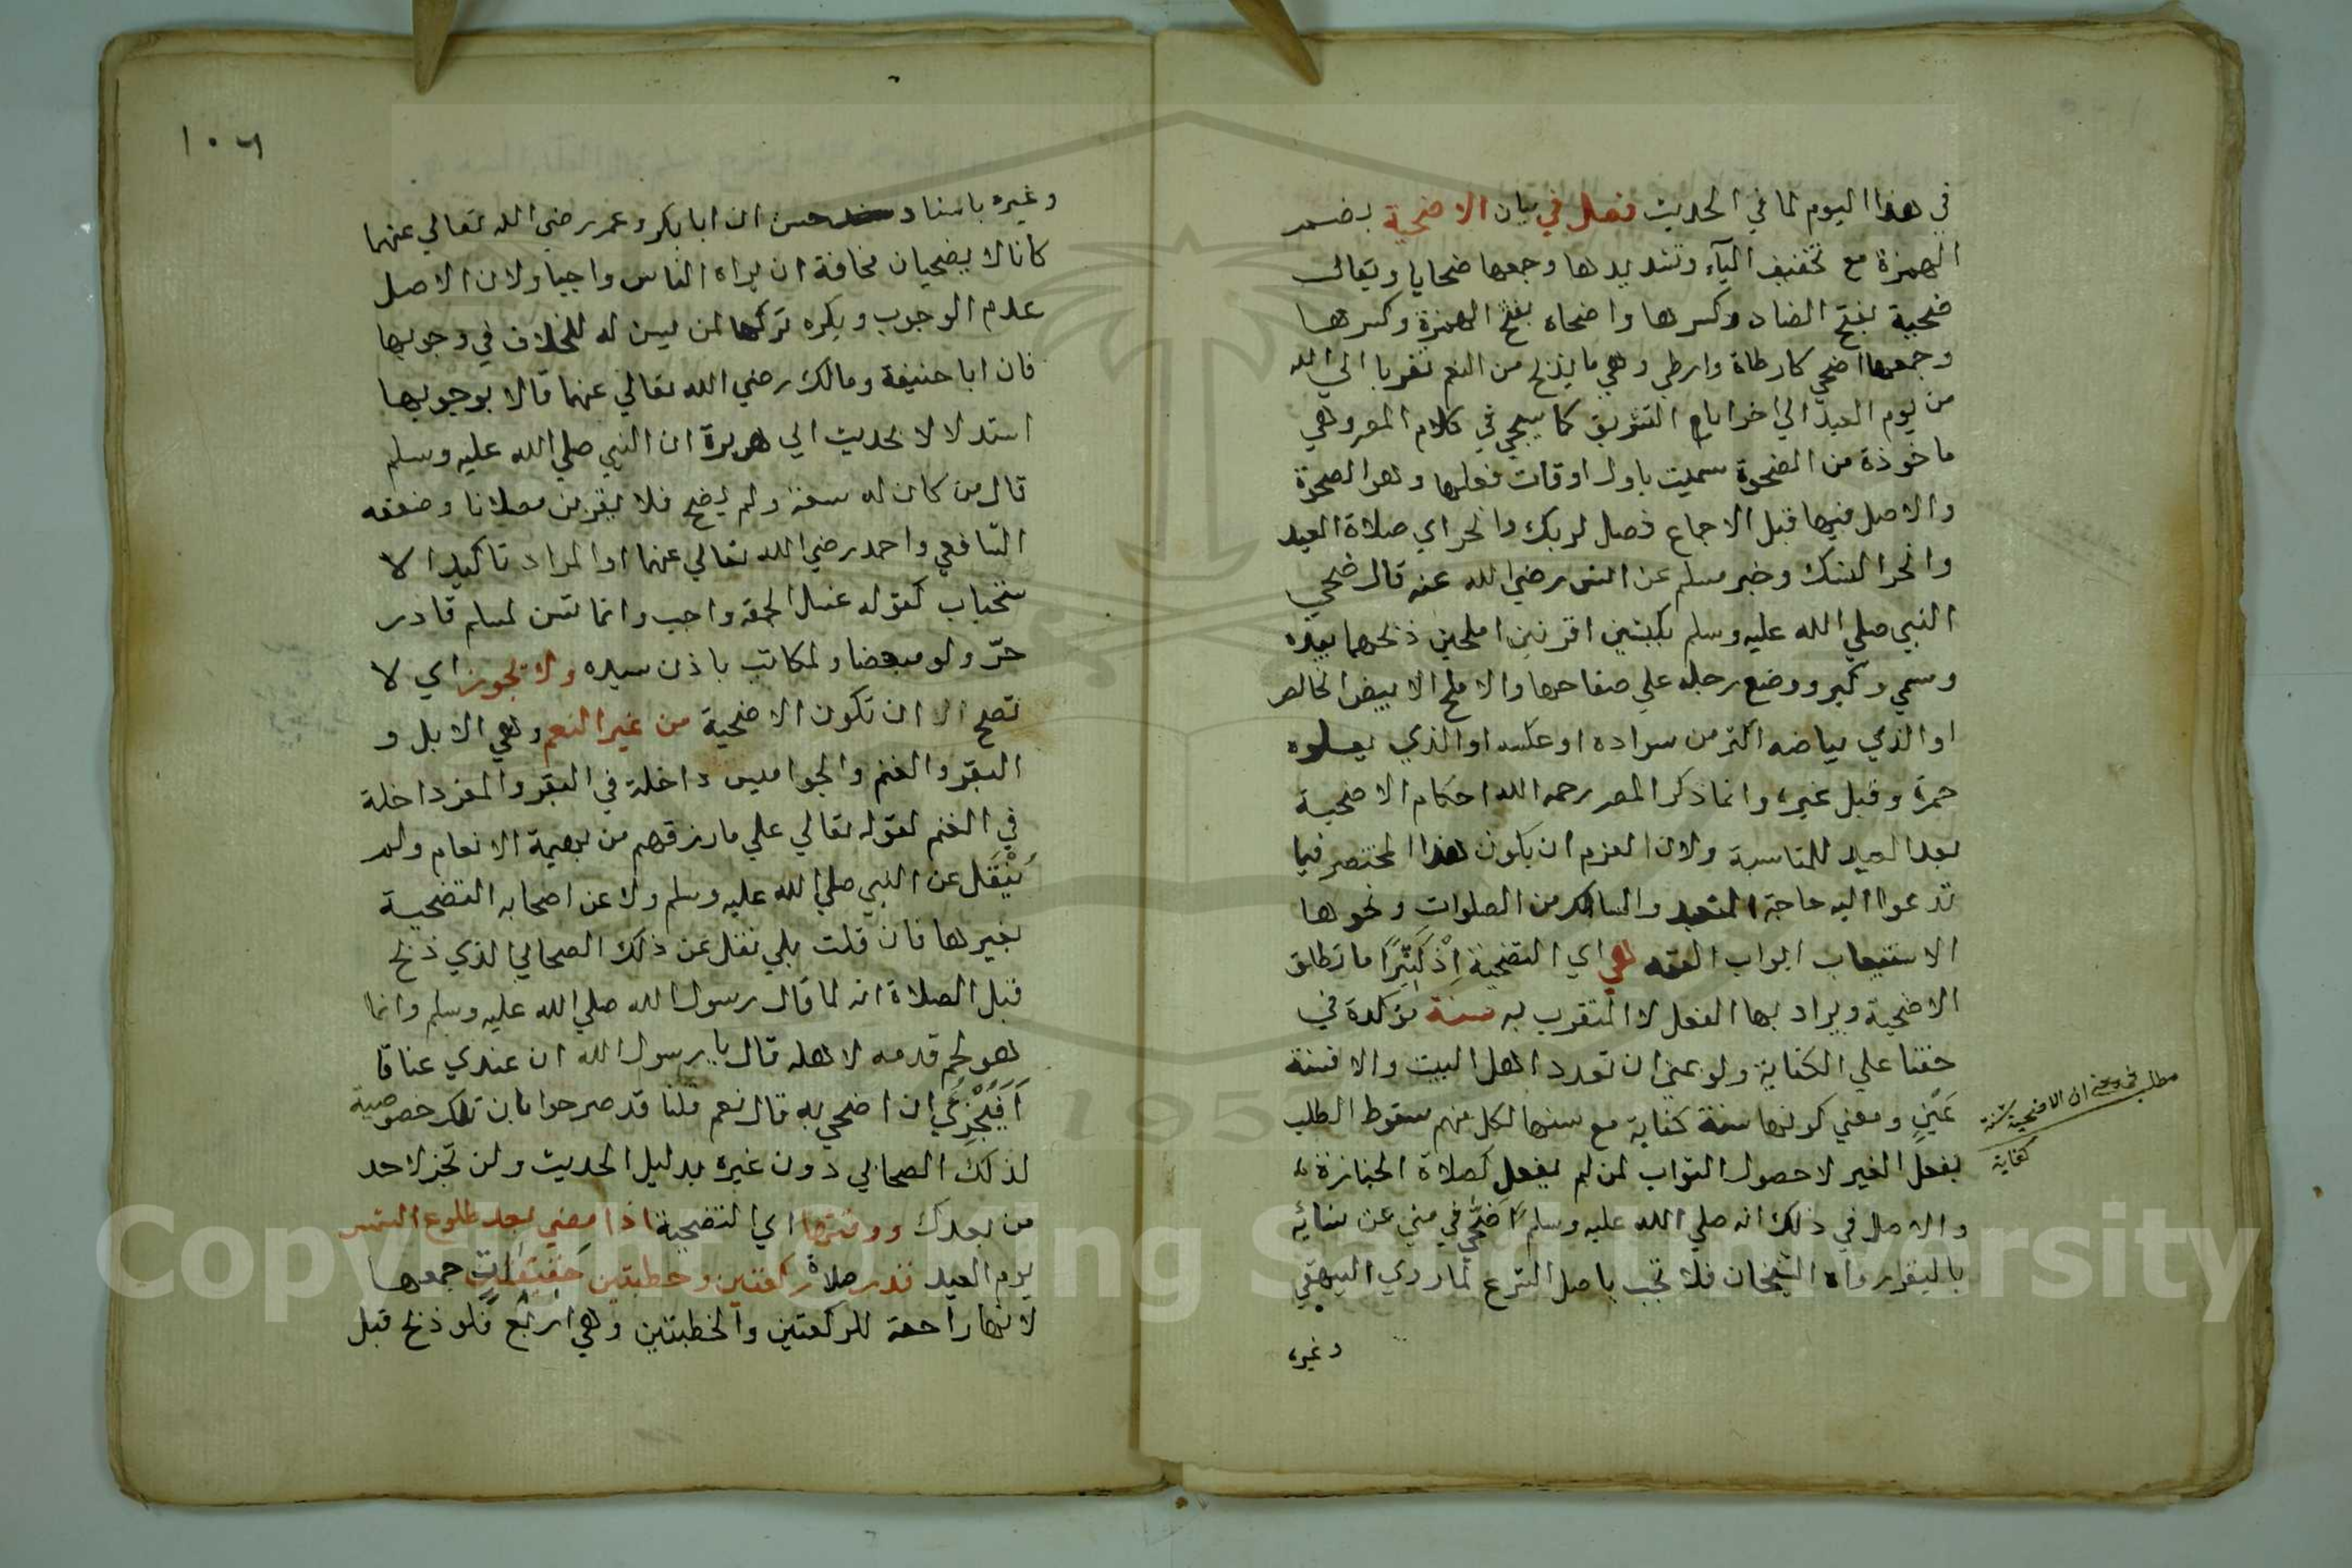 في هذا اليوم لما في الحديث فصل في بيان الاضحية بضم
الهمزة مع تخفيف اليآء وتشديدها وجمعها ضحايا ويقال
ضحية بفتح الضاد وكسرها واضحاه بفتح الهمزة وكسرها
وجمعها اضحي كارطاة وارطي وهي ما يذبح من النعم تقربا الي الله
من يوم العيد الي اخر ايام التشريق كما سيجي في كلام المص وهي
ماخوذة من الضحوة سميت باول اوقات فعلها وهو الضحوة
والاصل فيها قبل الاجماع فصل لربك وانحر اي صلاة العيد
وانحر النسك وخبر مسلم عن انس رضي الله عنه قال ضحي
النبي صلي الله عليه وسلم بكبشين اقرنين املحين ذبحهما بيده
وسمي وكبر ووضع رجله علي صفاحهما والاملح الابيض الخالص
او الذي بياضه اكثر من سواده او عكسه او الذي يعلوه
حمرة وقيل غيره وانما ذكر المص رحمه الله احكام الاضحية
بعد العيد للمناسبة ولان العزم ان يكون هذا المختصر فيما
تدعوا اليه حاجة المتعبد والسالك من الصلوات ونحوها
الاستيعاب ابواب الفقه هي اي التضحية اِذْ كَثِيْرًا ما تطلق
الاضحية ويراد بها الفعل لا المتقرب به سنة مؤكدة في
حقنا علي الكفاية ولو بمني ان تعدد اهل البيت والا فسنة
عَيْنٍ ومعني كونها سنة كفاية مع سنها لكل منهم سقوط الطلب
بفعل الغير لا حصول الثواب لمن لم يفعل كصلاة الجنازة
والاصل في ذلك انه صلي الله عليه وسلم ضَحّي في مني عن نسائه
بالبقر رواه الشيخان فلا تجب باصل الشرع لما روي البيهقي
وغيره
مطلب في معني ان الاضحية سنة
كفاية
١٠٦
وغيره باسناد حسن ان ابا بكر وعمر رضي الله تعالي عنهما
كانا لا يضحيان مخافة ان يراه الناس واجبا ولان الاصل
عدم الوجوب ويكره تركها لمن ليس له للخلاف في وجوبها
فان ابا حنيفة ومالك رضي الله تعالي عنهما قالا بوجوبها
استدلالا لحديث ابي هريرة ان النبي صلي الله عليه وسلم
قال من كان له سعة ولم يضح فلا يقربن مصلانا وضعفه
الشافعي واحمد رضي الله تعالي عنهما او المراد تاكيد الا
ستحباب كقوله غسل الجمعة واجب وانما تسن لمسلم قادر
حرّ ولو مبعضا ولمكاتب باذن سيده ولا تجوز اي لا
تصح الا ان تكون الاضحية من غير النعم وهي الابل و
البقر والغنم والجواميس داخلة في البقر والمعز داخلة
في الغنم لقوله تعالي علي ما رزقهم من بهيمة الانعام ولم
يُنْقَل عن النبي صلي الله عليه وسلم ولا عن اصحابه التضحية
بغيرها فان قلت بلي نقل عن ذلك الصحابي الذي ذبح
قبل الصلاة انه لما قال رسول الله صلي الله عليه وسلم وانما
هو لحم قدمه لاهله قال يا رسول الله ان عندي عناقا
اَفَيُجْزِئُ ان اضحي به قال نعم قلنا قد صرحوا بان تلك خصوصية
لذلك الصحابي دون غيره بدليل الحديث ولن تجز لاحد
من بعدك ووقتها اي التضحية اذا مضي بعد طلوع الشمس
يوم العيد قدر صلاة ركعتين وخطبتين خفيفات جمعها
لانها راجعة للركعتين والخطبتين وهي اربع فلو ذبح قبل